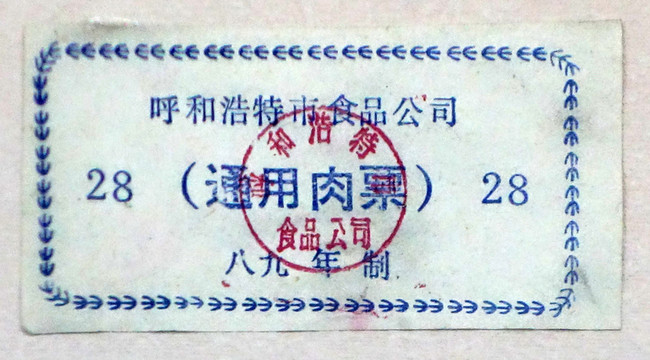 呼和浩特市食品公司
28 （通用肉票） 28
八九年制
呼和浩特市
食品公司